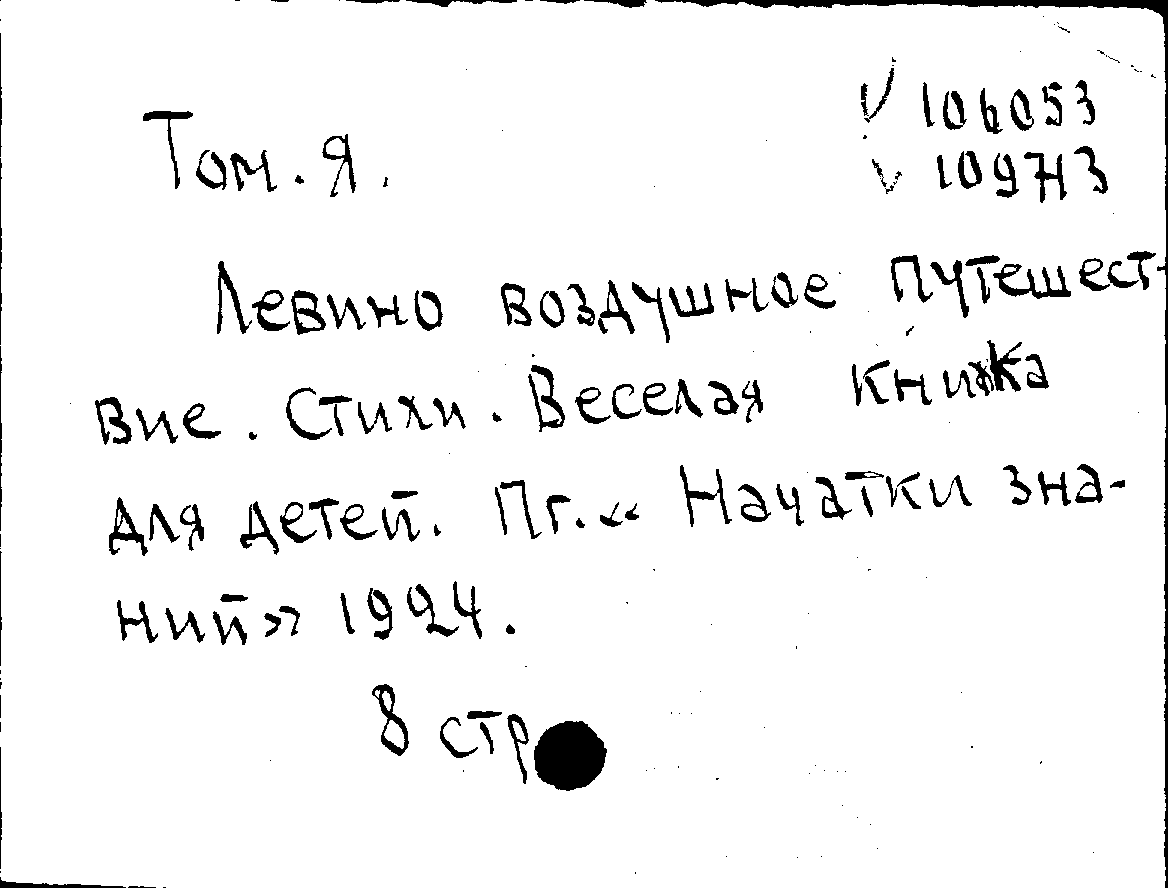 Том. Я.
√ 106053
√ 109713
Левино воздушное путешест-
вие. Стихи. Веселая книжка
для детей. Пг. «Начатки зна-
ний» 1924.
8 стр